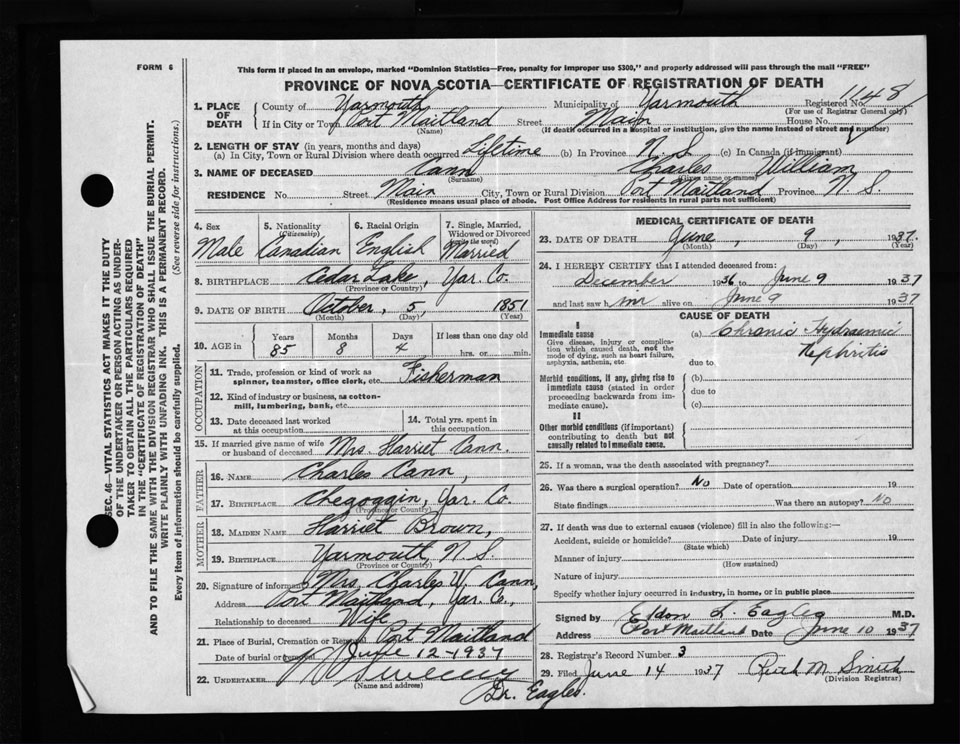 FORM 6
This form if placed in an envelope, marked "Dominion Statistics—Free, penalty for improper use $300," and properly addressed will pass through the mail "FREE"
PROVINCE OF NOVA SCOTIA—CERTIFICATE OF REGISTRATION OF DEATH
1148
1. PLACE OF DEATH
County of Yarmouth Municipality of Yarmouth Registered No.
(For use of Registrar General only)
If in City or Town Port Maitland Street Main House No.
(Name) (If death occurred in a hospital or institution, give the name instead of street and number)
2. LENGTH OF STAY (in years, months and days)
(a) In City, Town or Rural Division where death occurred Lifetime (b) In Province N. S. (c) In Canada (if immigrant)
3. NAME OF DECEASED Cann Charles William
(Surname) (Given name or names)
RESIDENCE No. Street Main City, Town or Rural Division Port Maitland Province N. S.
(Residence means usual place of abode. Post Office Address for residents in rural parts not sufficient)
4. Sex Male
5. Nationality (Citizenship) Canadian
6. Racial Origin English
7. Single, Married, Widowed or Divorced (write the word) Married
8. BIRTHPLACE Cedar Lake, Yar. Co.
(Province or Country)
9. DATE OF BIRTH October, 5, 1851
(Month) (Day) (Year)
10. AGE in Years Months Days If less than one day old
85 8 4 hrs. or min.
OCCUPATION
11. Trade, profession or kind of work as spinner, teamster, office clerk, etc. Fisherman
12. Kind of industry or business, as cotton-mill, lumbering, bank, etc.
13. Date deceased last worked at this occupation
14. Total yrs. spent in this occupation
15. If married give name of wife or husband of deceased Mrs. Harriet Cann.
FATHER
16. NAME Charles Cann,
17. BIRTHPLACE Chegoggin, Yar. Co.
(Province or Country)
MOTHER
18. MAIDEN NAME Harriet Brown,
19. BIRTHPLACE Yarmouth, N. S.
(Province or Country)
20. Signature of informant Mrs. Charles W. Cann,
Address Port Maitland, Yar. Co.,
Relationship to deceased Wife
21. Place of Burial, Cremation or Removal Port Maitland
Date of burial or removal June 12-1937
22. UNDERTAKER
(Name and address)
Dr. Eagles.
MEDICAL CERTIFICATE OF DEATH
23. DATE OF DEATH June, 9, 1937.
(Month) (Day) (Year)
24. I HEREBY CERTIFY that I attended deceased from:
December 1936 to June 9 1937
and last saw him alive on June 9 1937
CAUSE OF DEATH
I
Immediate cause
Give disease, injury or complication which caused death, not the mode of dying, such as heart failure, asphyxia, asthenia, etc.
(a) Chronic Hydraemic Nephritis
due to
Morbid conditions, if any, giving rise to immediate cause (stated in order proceeding backwards from immediate cause).
(b)
due to
(c)
II
Other morbid conditions (if important) contributing to death but not causally related to immediate cause.
25. If a woman, was the death associated with pregnancy?
26. Was there a surgical operation? No Date of operation 19
State findings Was there an autopsy? No
27. If death was due to external causes (violence) fill in also the following:—
Accident, suicide or homicide? Date of injury 19
(State which)
Manner of injury
(How sustained)
Nature of injury
Specify whether injury occurred in industry, in home, or in public place
Signed by Eldon L. Eagles M.D.
Address Port Maitland Date June 10 1937
28. Registrar's Record Number 3
29. Filed June 14 1937 Ruth M. Smith
(Division Registrar)
SEC. 46—VITAL STATISTICS ACT MAKES IT THE DUTY
OF THE UNDERTAKER OR PERSON ACTING AS UNDER-
TAKER TO OBTAIN ALL THE PARTICULARS REQUIRED
IN THE "CERTIFICATE OF REGISTRATION OF DEATH"
AND TO FILE THE SAME WITH THE DIVISION REGISTRAR WHO SHALL ISSUE THE BURIAL PERMIT.
WRITE PLAINLY WITH UNFADING INK. THIS IS A PERMANENT RECORD.
Every item of information should be carefully supplied. (See reverse side for instructions.)